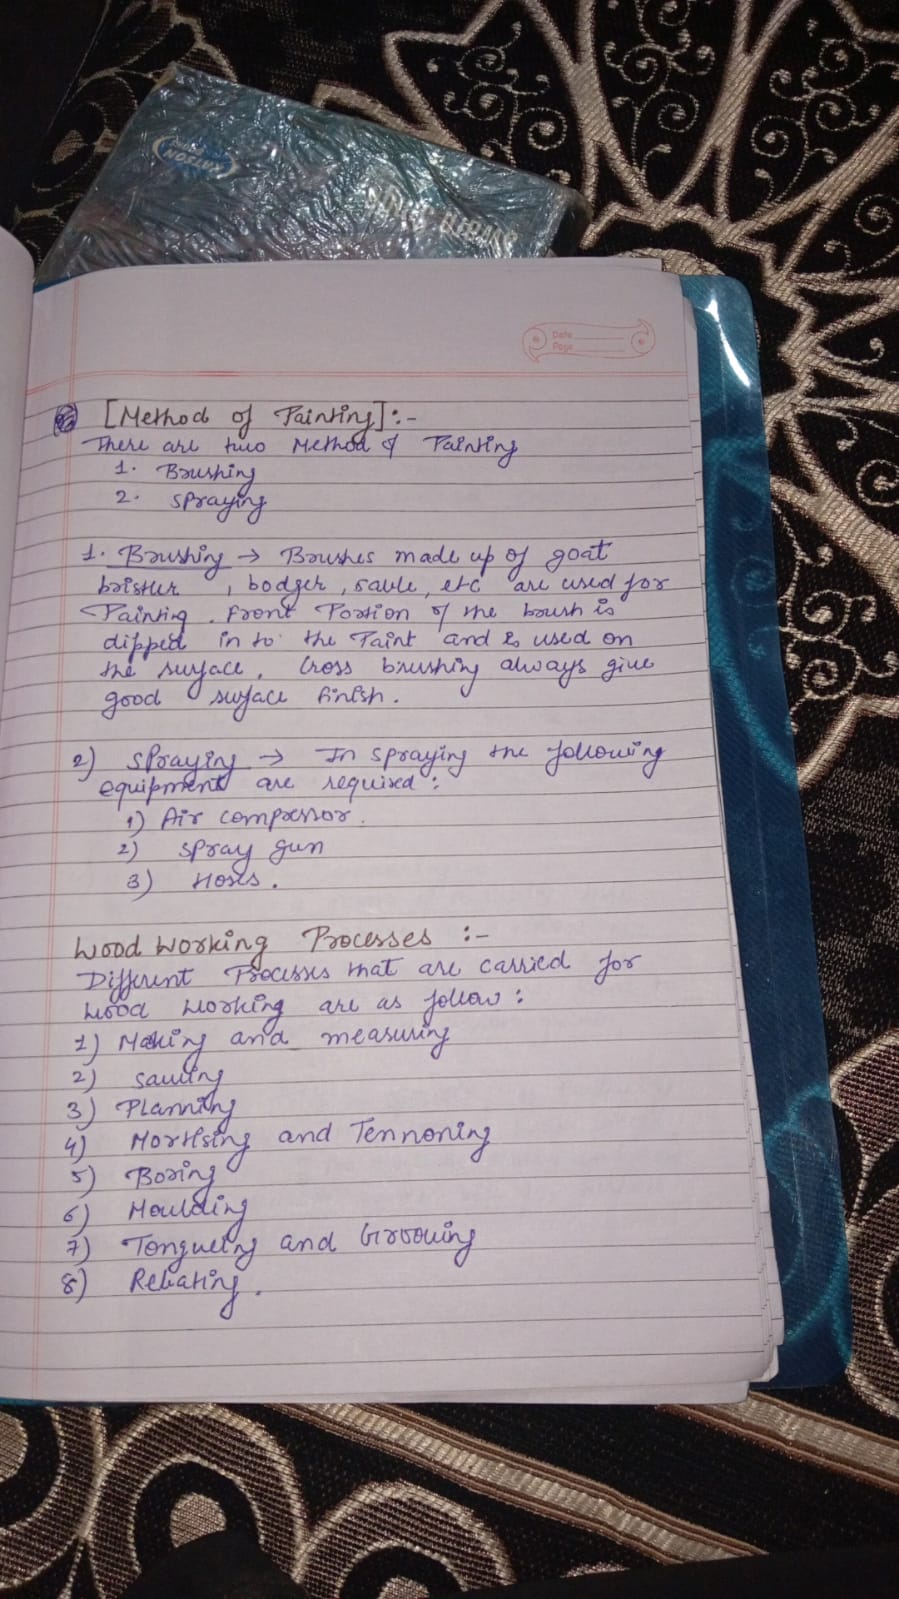 WATSON
Date
Page
[Method of Painting]:-
There are two Method of Painting
1. Brushing
2. spraying
1. Brushing → Brushes made up of goat
brister , bodger , sable, etc are used for
Painting. Front Portion of the brush is
dipped in to the Paint and is used on
the surface, Cross brushing always give
good surface finish.
2) spraying → In spraying the following
equipment are required:
1) Air compressor.
2) spray gun
3) Hoses.
Wood Working Processes :-
Different Processes that are carried for
wood working are as follow:
1) Making and measuring
2) sawing
3) Planning
4) Mortising and Tennoning
5) Boring
6) Moulding
7) Tongueing and Grooving
8) Rebating.